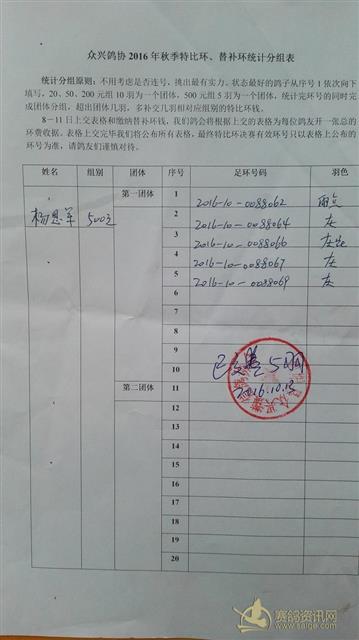 众兴鸽协 2016 年秋季特比环、替补环统计分组表
统计分组原则：不用考虑是否连号，挑出最有实力、状态最好的鸽子从序号 1 依次向下
填写，20、50、200 元组 10 羽为一个团体，500 元组 5 羽为一个团体，统计完环号的同时完
成团体分组，超出团体几羽，多补交几羽相对应组别的特比环钱。
8－11 日上交表格和缴纳替补环钱，我们鸽会将根据上交的表格为每位鸽友开一张总的
环费收据。表格上交完毕我们将公布所有表格，最终特比环决赛有效环号只以表格上公布的
环号为准，请鸽友们谨慎对待。
姓名 组别 团体 序号 足环号码 羽色
杨恩军 500元 第一团体 1 2016-10-0088062 雨点
2 2016-10-0088064 灰
3 2016-10-0088066
4 2016-10-0088067 灰
5 2016-10-0088069 灰
6
7
8
9
10 已交 5羽
第二团体 11 2016.10.13
12
13
14
15
16
17
18
19
20
赛鸽资讯网
www.saige.com